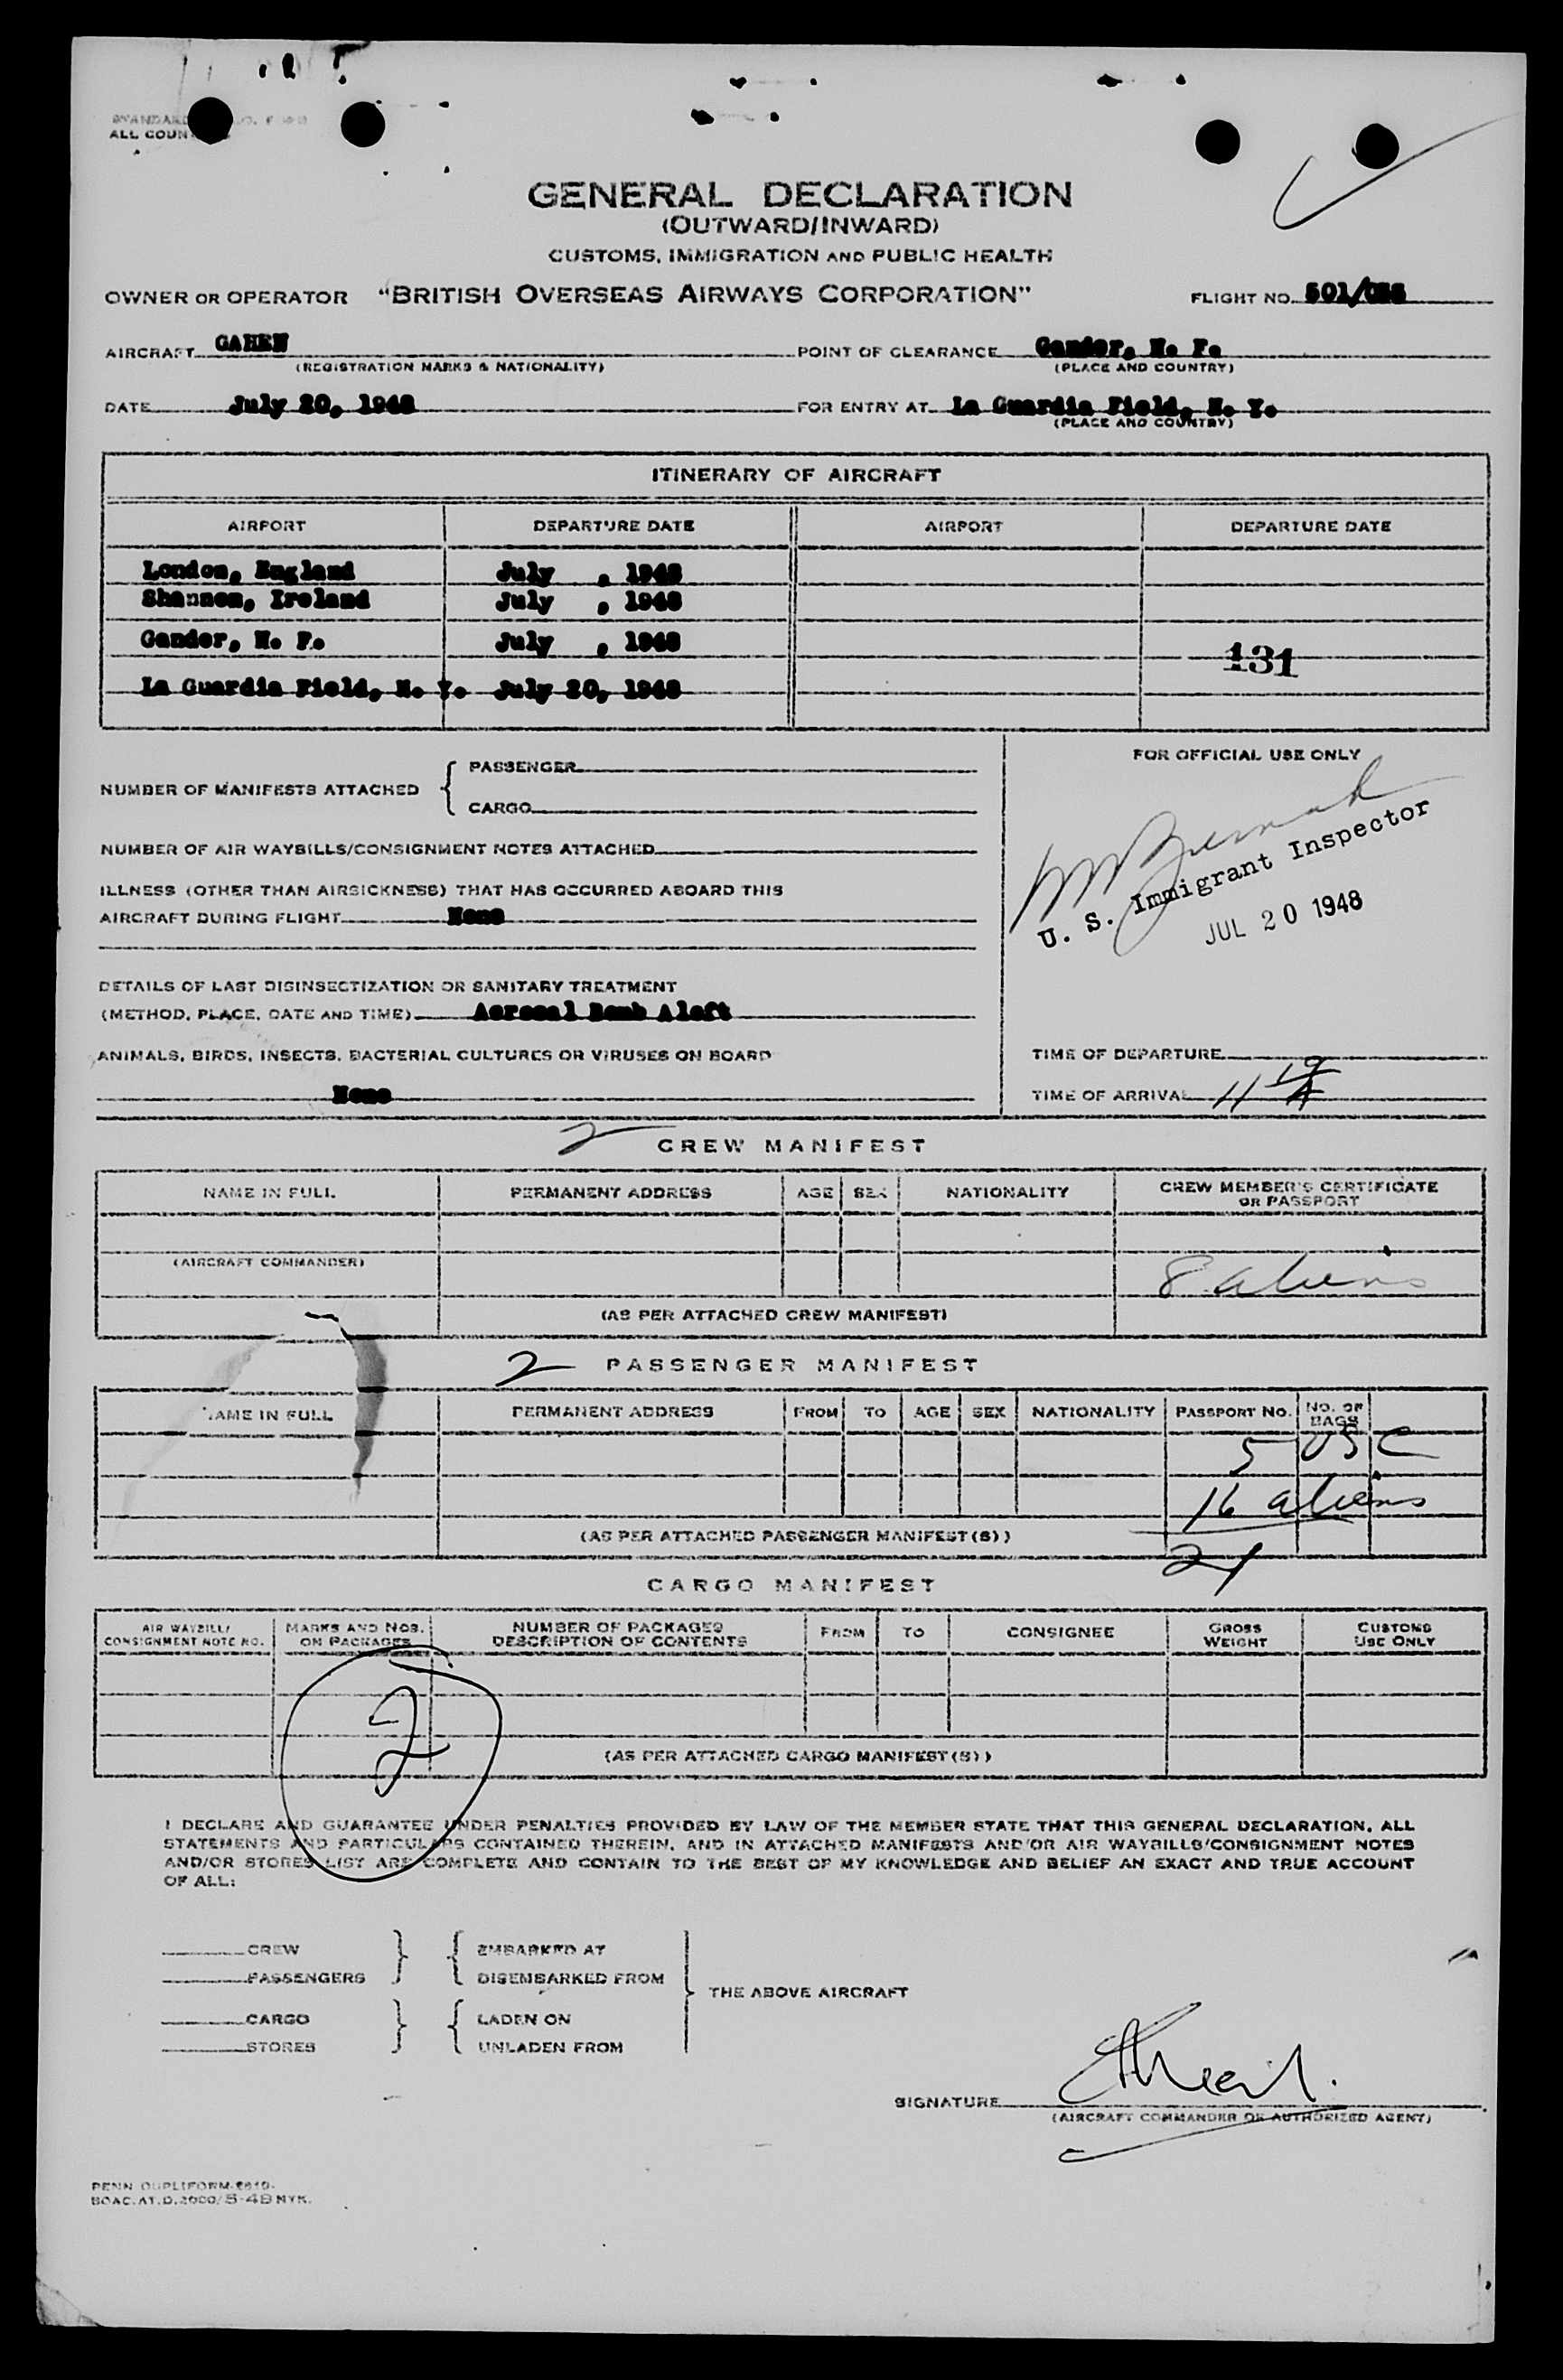 ALL COUN
GENERAL DECLARATION
(OUTWARD/INWARD)
CUSTOMS, IMMIGRATION AND PUBLIC HEALTH
OWNER OR OPERATOR "BRITISH OVERSEAS AIRWAYS CORPORATION" FLIGHT NO. 501/
AIRCRAFT GAHEN POINT OF CLEARANCE Gander, N. F.
(REGISTRATION MARKS & NATIONALITY) (PLACE AND COUNTRY)
DATE July 20, 1948 FOR ENTRY AT La Guardia Field, N. Y.
(PLACE AND COUNTRY)
ITINERARY OF AIRCRAFT
AIRPORT DEPARTURE DATE AIRPORT DEPARTURE DATE
London, England July , 1948
Shannon, Ireland July , 1948
Gander, N. F. July , 1948
131
La Guardia Field, N. Y. July 20, 1948
FOR OFFICIAL USE ONLY
PASSENGER
NUMBER OF MANIFESTS ATTACHED
CARGO
U. S. Immigrant Inspector
JUL 20 1948
NUMBER OF AIR WAYBILLS/CONSIGNMENT NOTES ATTACHED
ILLNESS (OTHER THAN AIRSICKNESS) THAT HAS OCCURRED ABOARD THIS
AIRCRAFT DURING FLIGHT None
DETAILS OF LAST DISINSECTIZATION OR SANITARY TREATMENT
(METHOD, PLACE, DATE AND TIME) Aerosal Bomb Aloft
ANIMALS, BIRDS, INSECTS, BACTERIAL CULTURES OR VIRUSES ON BOARD
None
TIME OF DEPARTURE
TIME OF ARRIVAL 11 19 A
2 CREW MANIFEST
NAME IN FULL PERMANENT ADDRESS AGE SEX NATIONALITY CREW MEMBER'S CERTIFICATE OR PASSPORT
(AIRCRAFT COMMANDER)
8 aliens
(AS PER ATTACHED CREW MANIFEST)
2 PASSENGER MANIFEST
NAME IN FULL PERMANENT ADDRESS FROM TO AGE SEX NATIONALITY PASSPORT NO. NO. OF BAGS
5 USC
16 aliens
(AS PER ATTACHED PASSENGER MANIFEST(S))
21
CARGO MANIFEST
AIR WAYBILL/ CONSIGNMENT NOTE NO. MARKS AND NOS. ON PACKAGES NUMBER OF PACKAGES DESCRIPTION OF CONTENTS FROM TO CONSIGNEE GROSS WEIGHT CUSTOMS USE ONLY
2
(AS PER ATTACHED CARGO MANIFEST(S))
I DECLARE AND GUARANTEE UNDER PENALTIES PROVIDED BY LAW OF THE MEMBER STATE THAT THIS GENERAL DECLARATION, ALL
STATEMENTS AND PARTICULARS CONTAINED THEREIN, AND IN ATTACHED MANIFESTS AND/OR AIR WAYBILLS/CONSIGNMENT NOTES
AND/OR STORES LIST ARE COMPLETE AND CONTAIN TO THE BEST OF MY KNOWLEDGE AND BELIEF AN EXACT AND TRUE ACCOUNT
OF ALL:
CREW EMBARKED AT
PASSENGERS DISEMBARKED FROM
THE ABOVE AIRCRAFT
CARGO LADEN ON
STORES UNLADEN FROM
SIGNATURE
(AIRCRAFT COMMANDER OR AUTHORIZED AGENT)
BOAC.AT.D.2000/5-48 NYK.